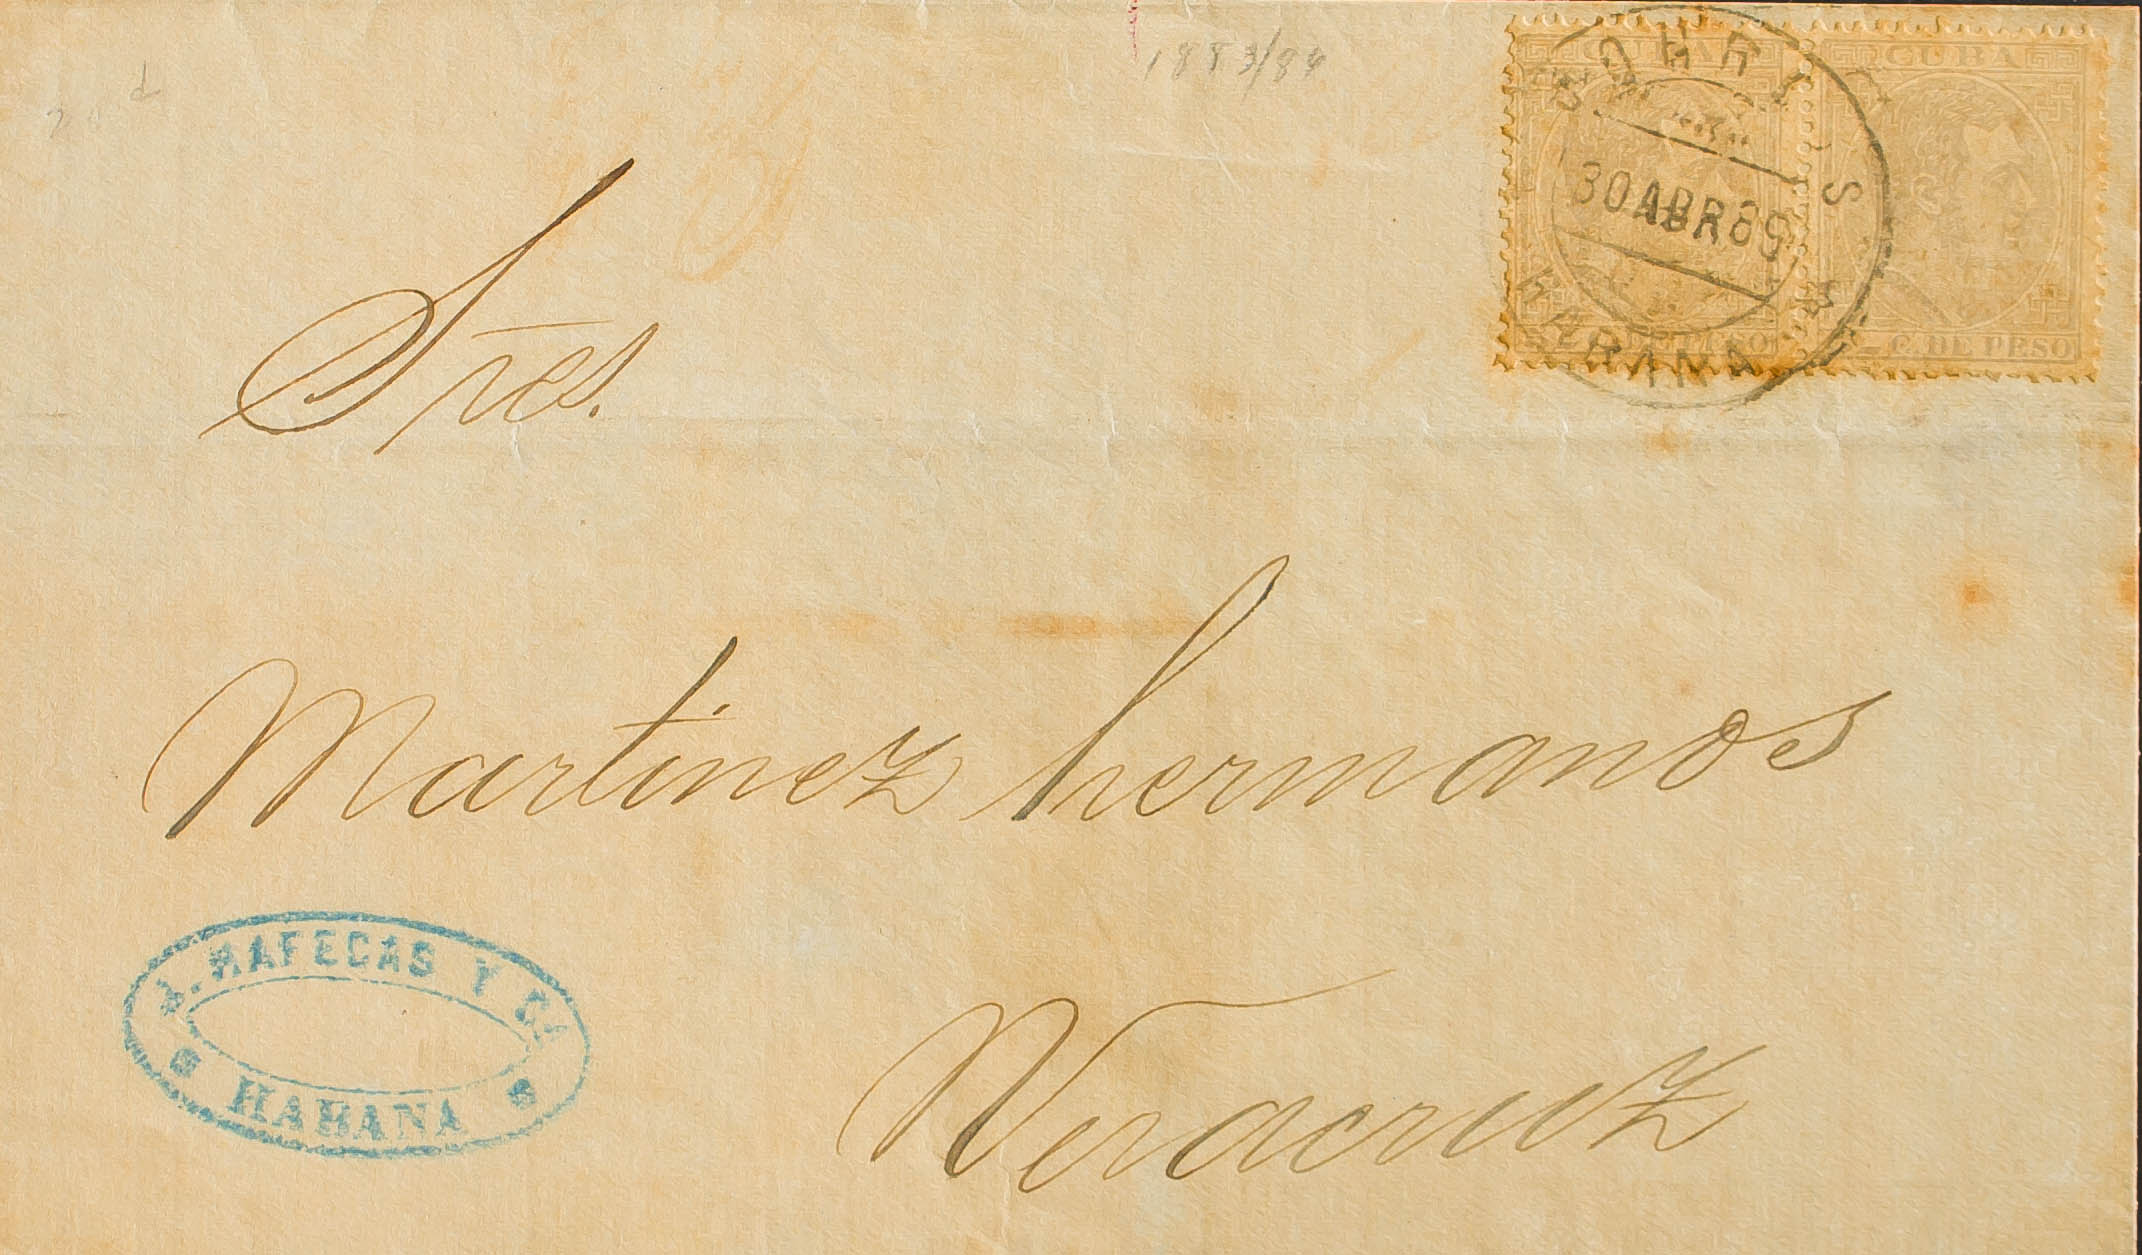 1883/84
CUBA CUBA
CORREOS
30 ABR 89
HABANA
DE PESO
C. DE PESO
Sres.
Martinez hermanos
Veracruz
J. RAFECAS Y Ca
HABANA